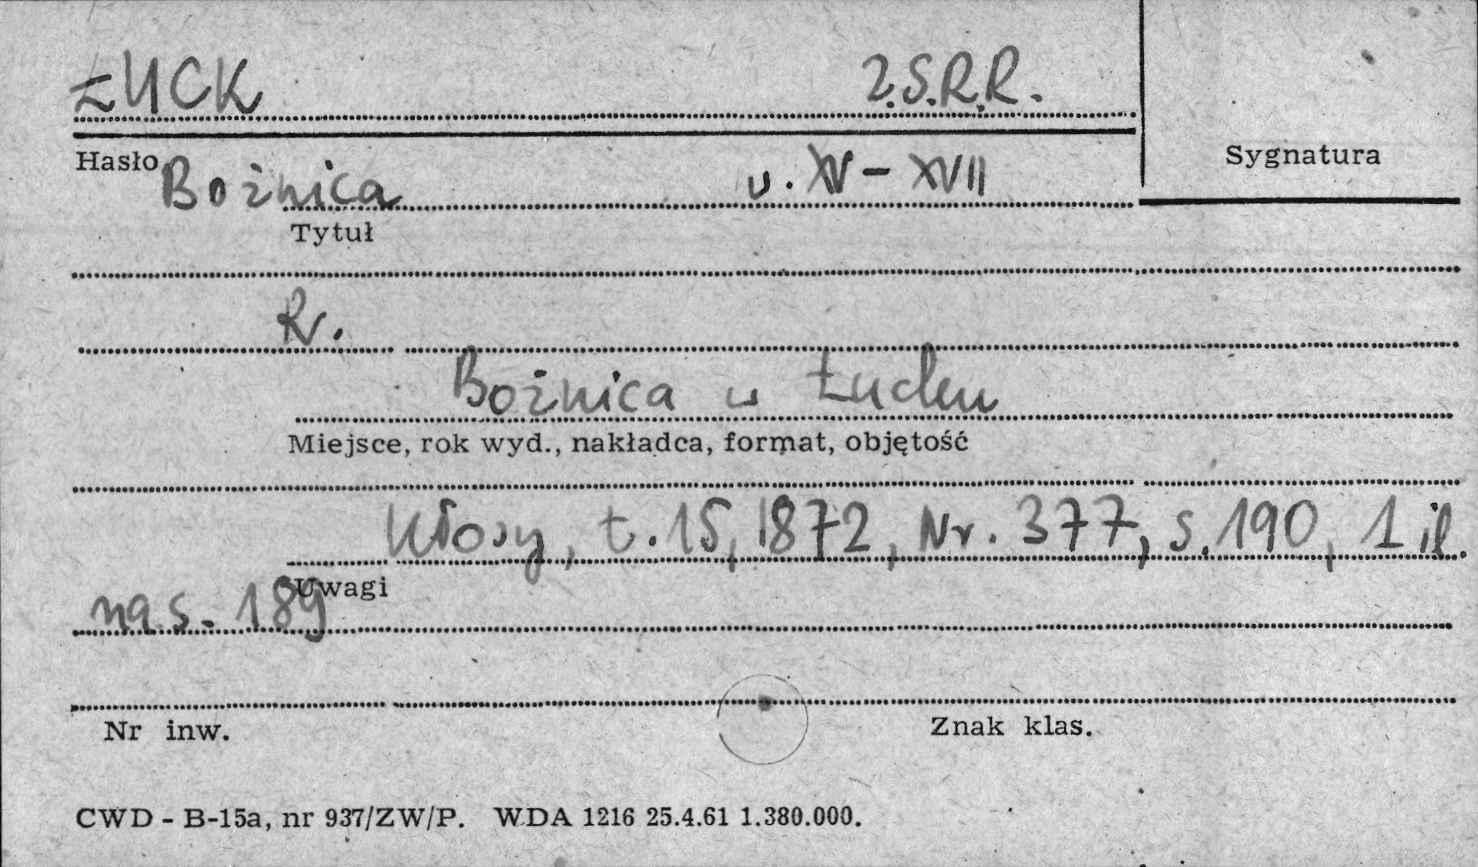 ŁUCK Z.S.R.R.
Hasło
Sygnatura
Bożnica w. XV – XVII
Tytuł
R.
Bożnica w Łucku
Miejsce, rok wyd., nakładca, format, objętość
Kłosy, t. 15, 1872, Nr. 377, s. 190, 1 il.
Uwagi
na s. 189
Nr inw. Znak klas.
CWD - B-15a, nr 937/ZW/P. WDA 1216 25.4.61 1.380.000.